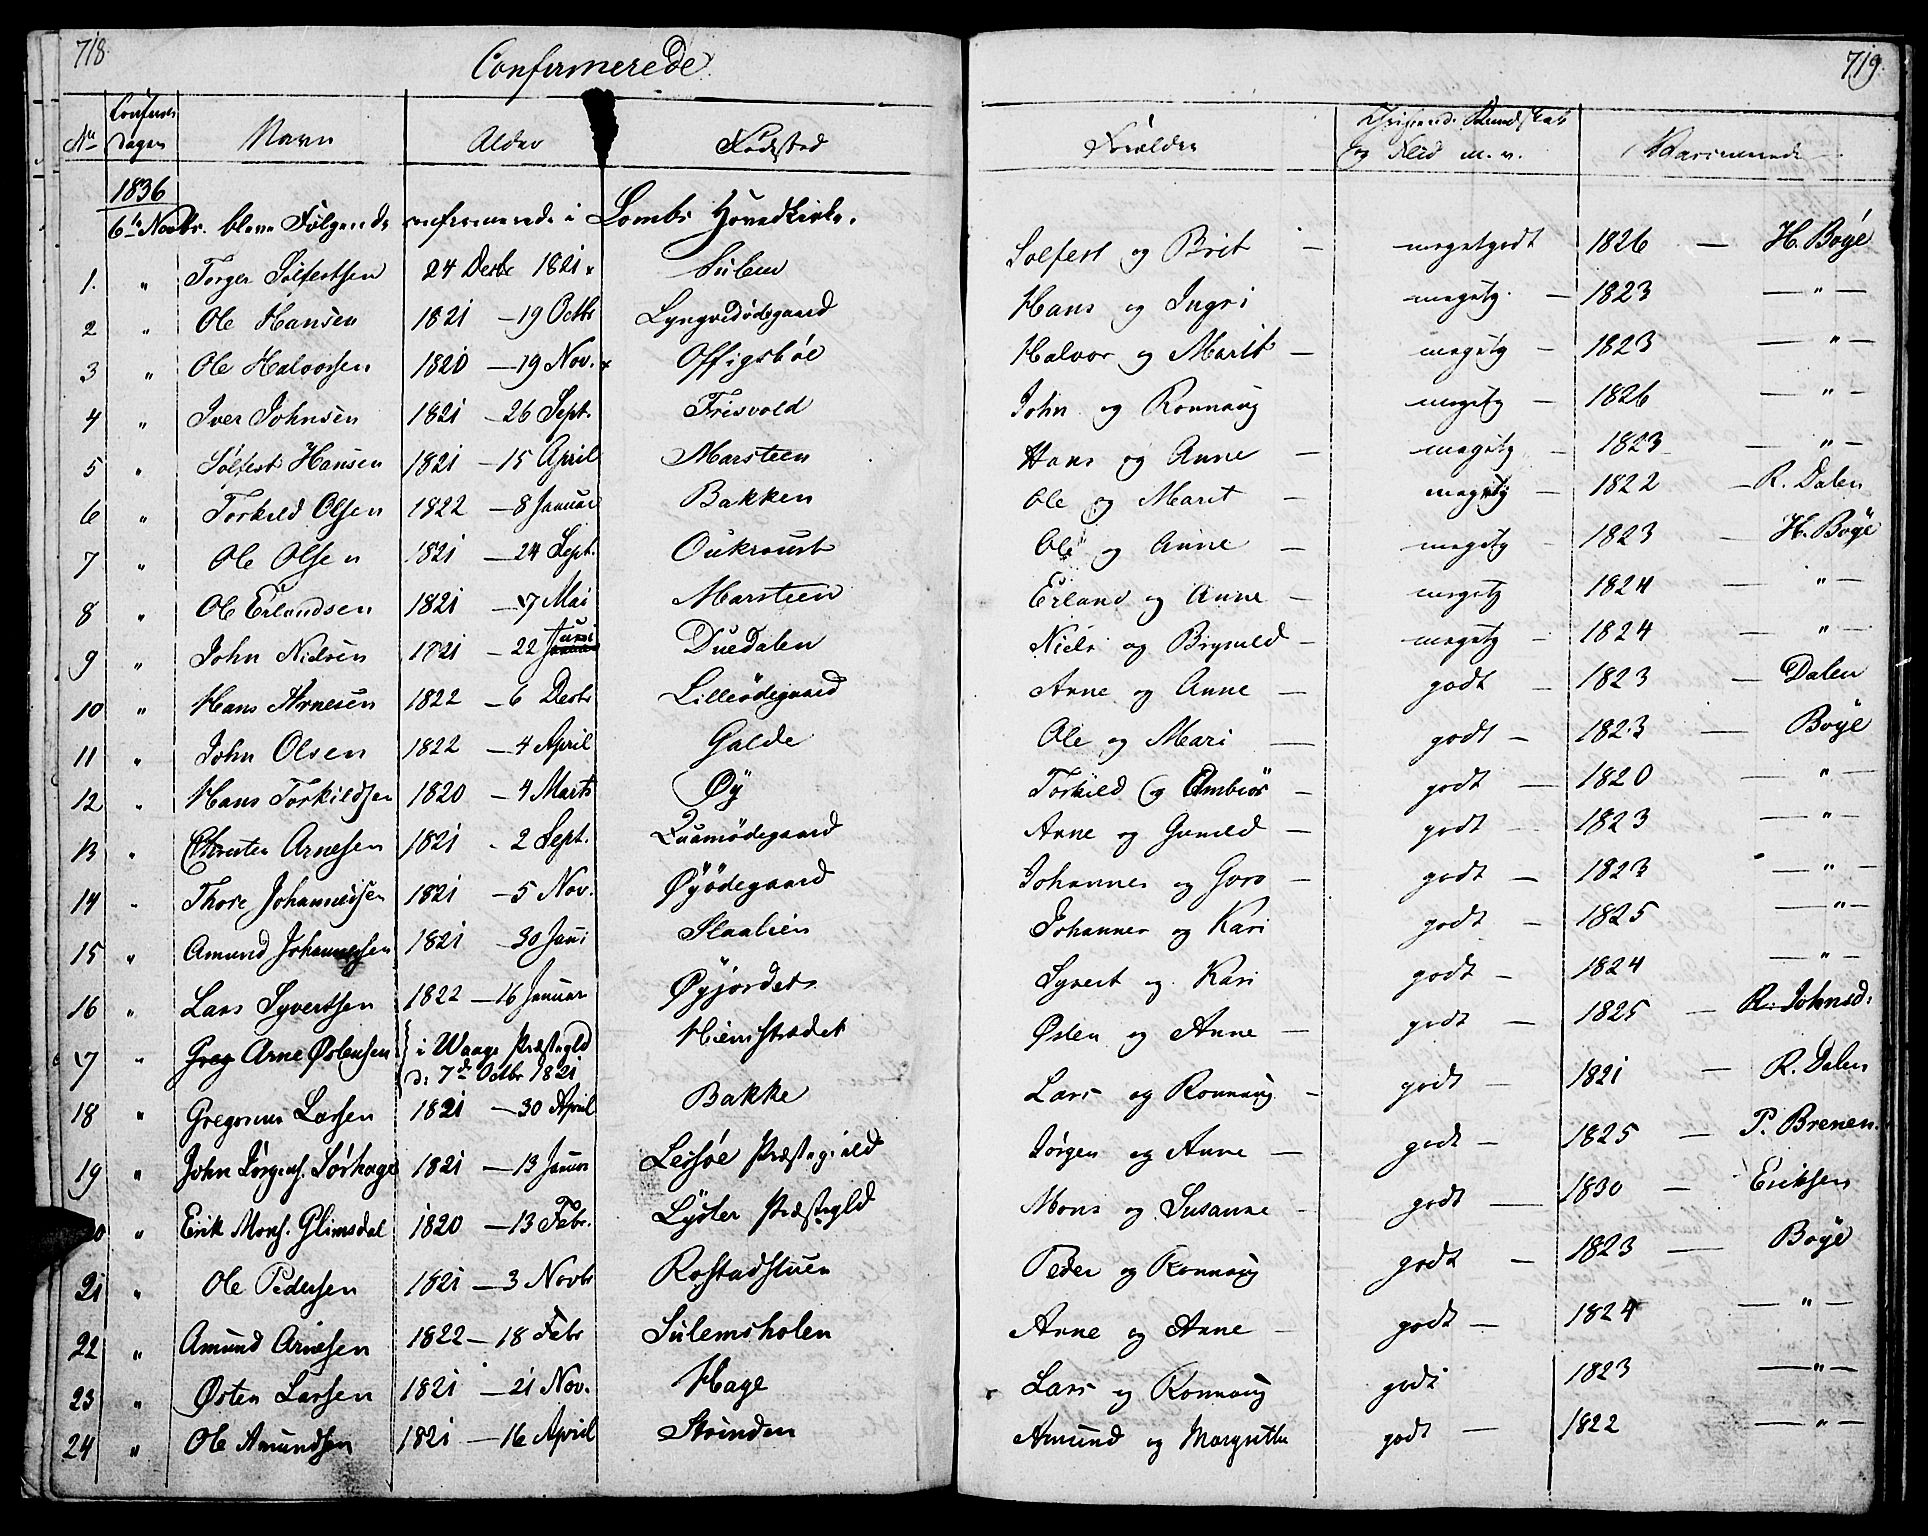 718.
Confirmerede.
719.
No
Confirm:
dagen
Navn
Alder
Fødested
Forældre
Christend: Kundskab
og Flid m. v.
Vaccinerede
1836
6te Novbr. bleve Følgende confirmerede i Lombs Hovedkirke.
1. " Torger Solfestsen 24 Decbr 1821 Sulem Solfest og Brit — megetgodt 1826 — H. Boye
2 " Ole Hansen 1821 — 19 Octbr Lyngvedødegaard Hans og Ingri megetg. — 1823 — " —
3 " Ole Halvorsen 1820 — 19 Nov. Offigsböe Halvor og Marit — megetg — 1823 — " —
4 " Iver Johnsen 1821 — 26 Sept. Frisvold John og Ronnaug megetg — 1826 — " —
5 " Solfest Hansen 1821 — 15 April Marsteen Hans og Anne — megetg — 1823 — " —
6 " Torkild Olsen 1822 — 8 Januar Bakken Ole og Marit — megetg — 1822 — R. Dalen
7 " Ole Olsen 1821 — 24 Sept. Oukroust Ole og Anne — megetg — 1823 — H. Boye
8 " Ole Erlandsen 1821 — 7 Mai Marsteen Erland og Anne — megetg 1824 — " —
9 " John Nielsen 1821 — 22 Juni Duedalen Niels og Brynild — megetg — 1824 — " —
10 " Hans Arnesen 1822 — 6 Decbr Lilleödegaard Arne og Anne — godt — 1823 — Dalen
11 " John Olsen 1822 — 4 April Galde Ole og Mari — godt — 1823 — Boye
12 " Hans Torkildsen 1820 — 4 Marts Øy Torkild og Embiør — godt — 1820 — " —
13 " Christen Arnesen 1821 - 2 Sept. Quamödegaard Arne og Gunild — godt — 1823 — " —
14 " Thore Johannessen 1821 — 5 Nov. Øyödegaard Johannes og Goro — godt — 1823 — " —
15 " Amund Johannessen 1821 — 30 Juni Slaalien Johannes og Kari godt — 1825 — " —
16 " Lars Syvertsen 1822 — 16 Januar Øyjordet Syvert og Kari godt — 1824 — " —
17 " Greg Arne Østensen i Waage Præstegld d: 7de Octbr 1821 Hiemstædet Østen og Anne — godt — 1825 — R. Johnsd:
18 " Gregorius Larsen 1821 — 30 April Bakke Lars og Ronnaug — godt — 1821 — R. Dalen
19 " John Jørgens. Sörhage 1821 — 13 Januar Lessøe Præstegield Jørgen og Anne — godt — 1825 — P. Brenen.
20 " Erik Mons. Glimsdal 1820 — 13 Febr. Lyster Præstegld Mons og Susanne — godt — 1830 — Eriksen
21 " Ole Pedersen 1821 — 3 Novbr Rostadstuen Peder og Ronnaug godt — 1823 — Boye
22 " Amund Arnesen 1822 — 18 Febr Sulemsholen Arne og Anne — godt — 1824 — " —
23 " Østen Larsen 1821 — 21 Nov. Hage Lars og Ronnaug godt 1823 — " —
24 " Ole Amundsen 1821 — 16 April Strinden Amund og Margrethe godt — 1822 — " —